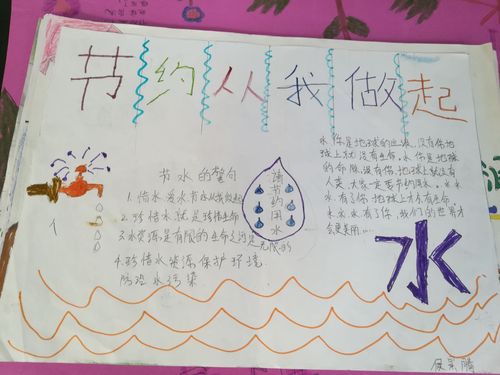 节约从我做起
节水的警句
1.惜水爱水节水从我做起
2.珍惜水就是珍惜生命
3.水资源是有限的生命之河是无限的
4.珍惜水资源保护环境
防治水污染
请节约用水
水你是地球的血液,没有你地
球上就没有生命。水你是地球
的命脉没有你地球上就没有
人类,大家一定要节约用水。水水
水有了你地球上才有生命
水水水有了你,我们的世界才
会更美丽……
水